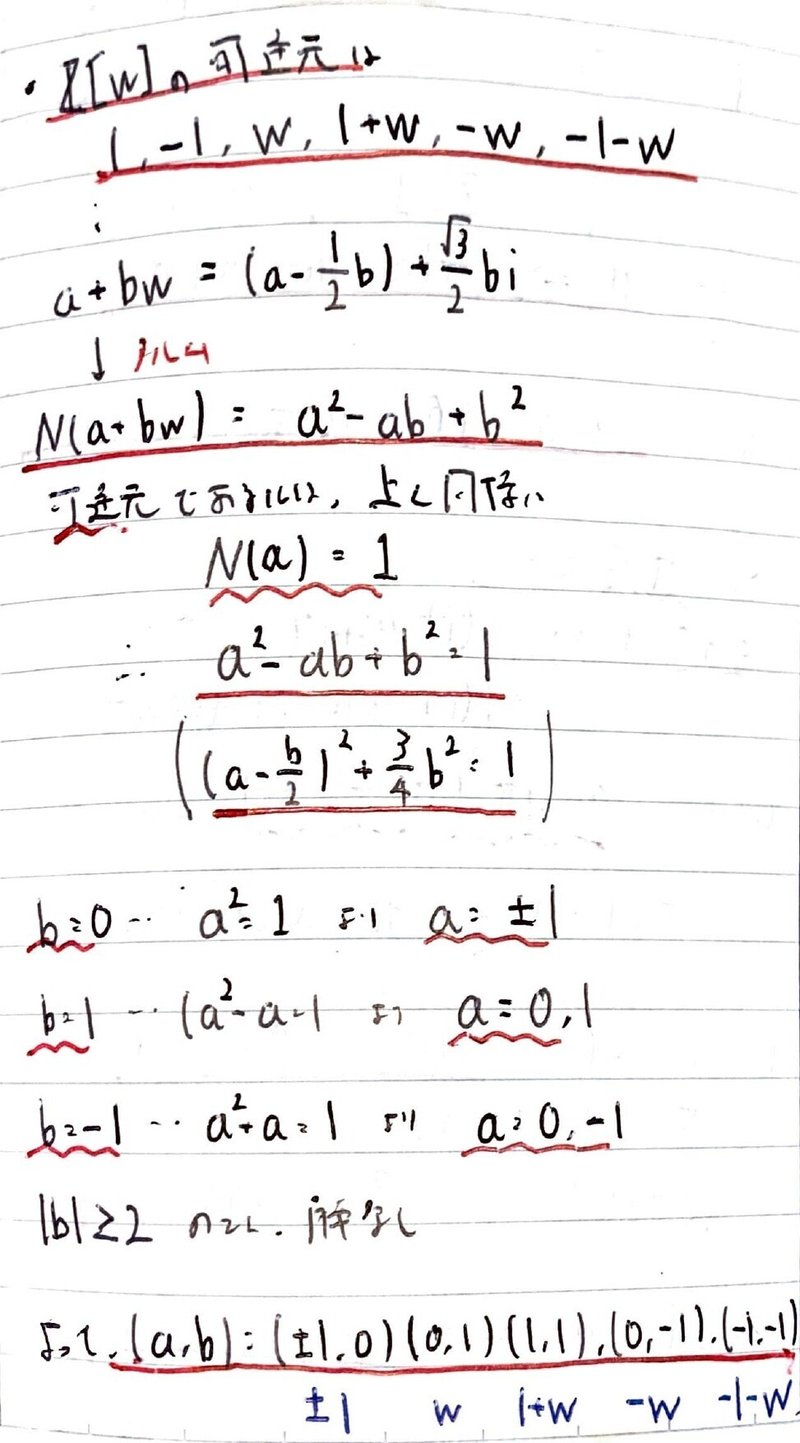 ・Z[w]の可逆元は
1, -1, w, 1+w, -w, -1-w
∵
a+bw = (a-1/2b)+√3/2bi
↓ノルム
N(a+bw) = a²-ab+b²
可逆元であるには, 上と同様に
N(a) = 1
∴ a²-ab+b²=1
((a-b/2)²+3/4b²=1)
b=0… a²=1 より a=±1
b=1 … (a²-a=1 より a=0,1
b=-1 … a²+a=1 より a=0,-1
|b|≥2 のとき. 解なし
よって,(a,b)=(±1,0)(0,1)(1,1),(0,-1),(-1,-1)
±1 w 1+w -w -1-w